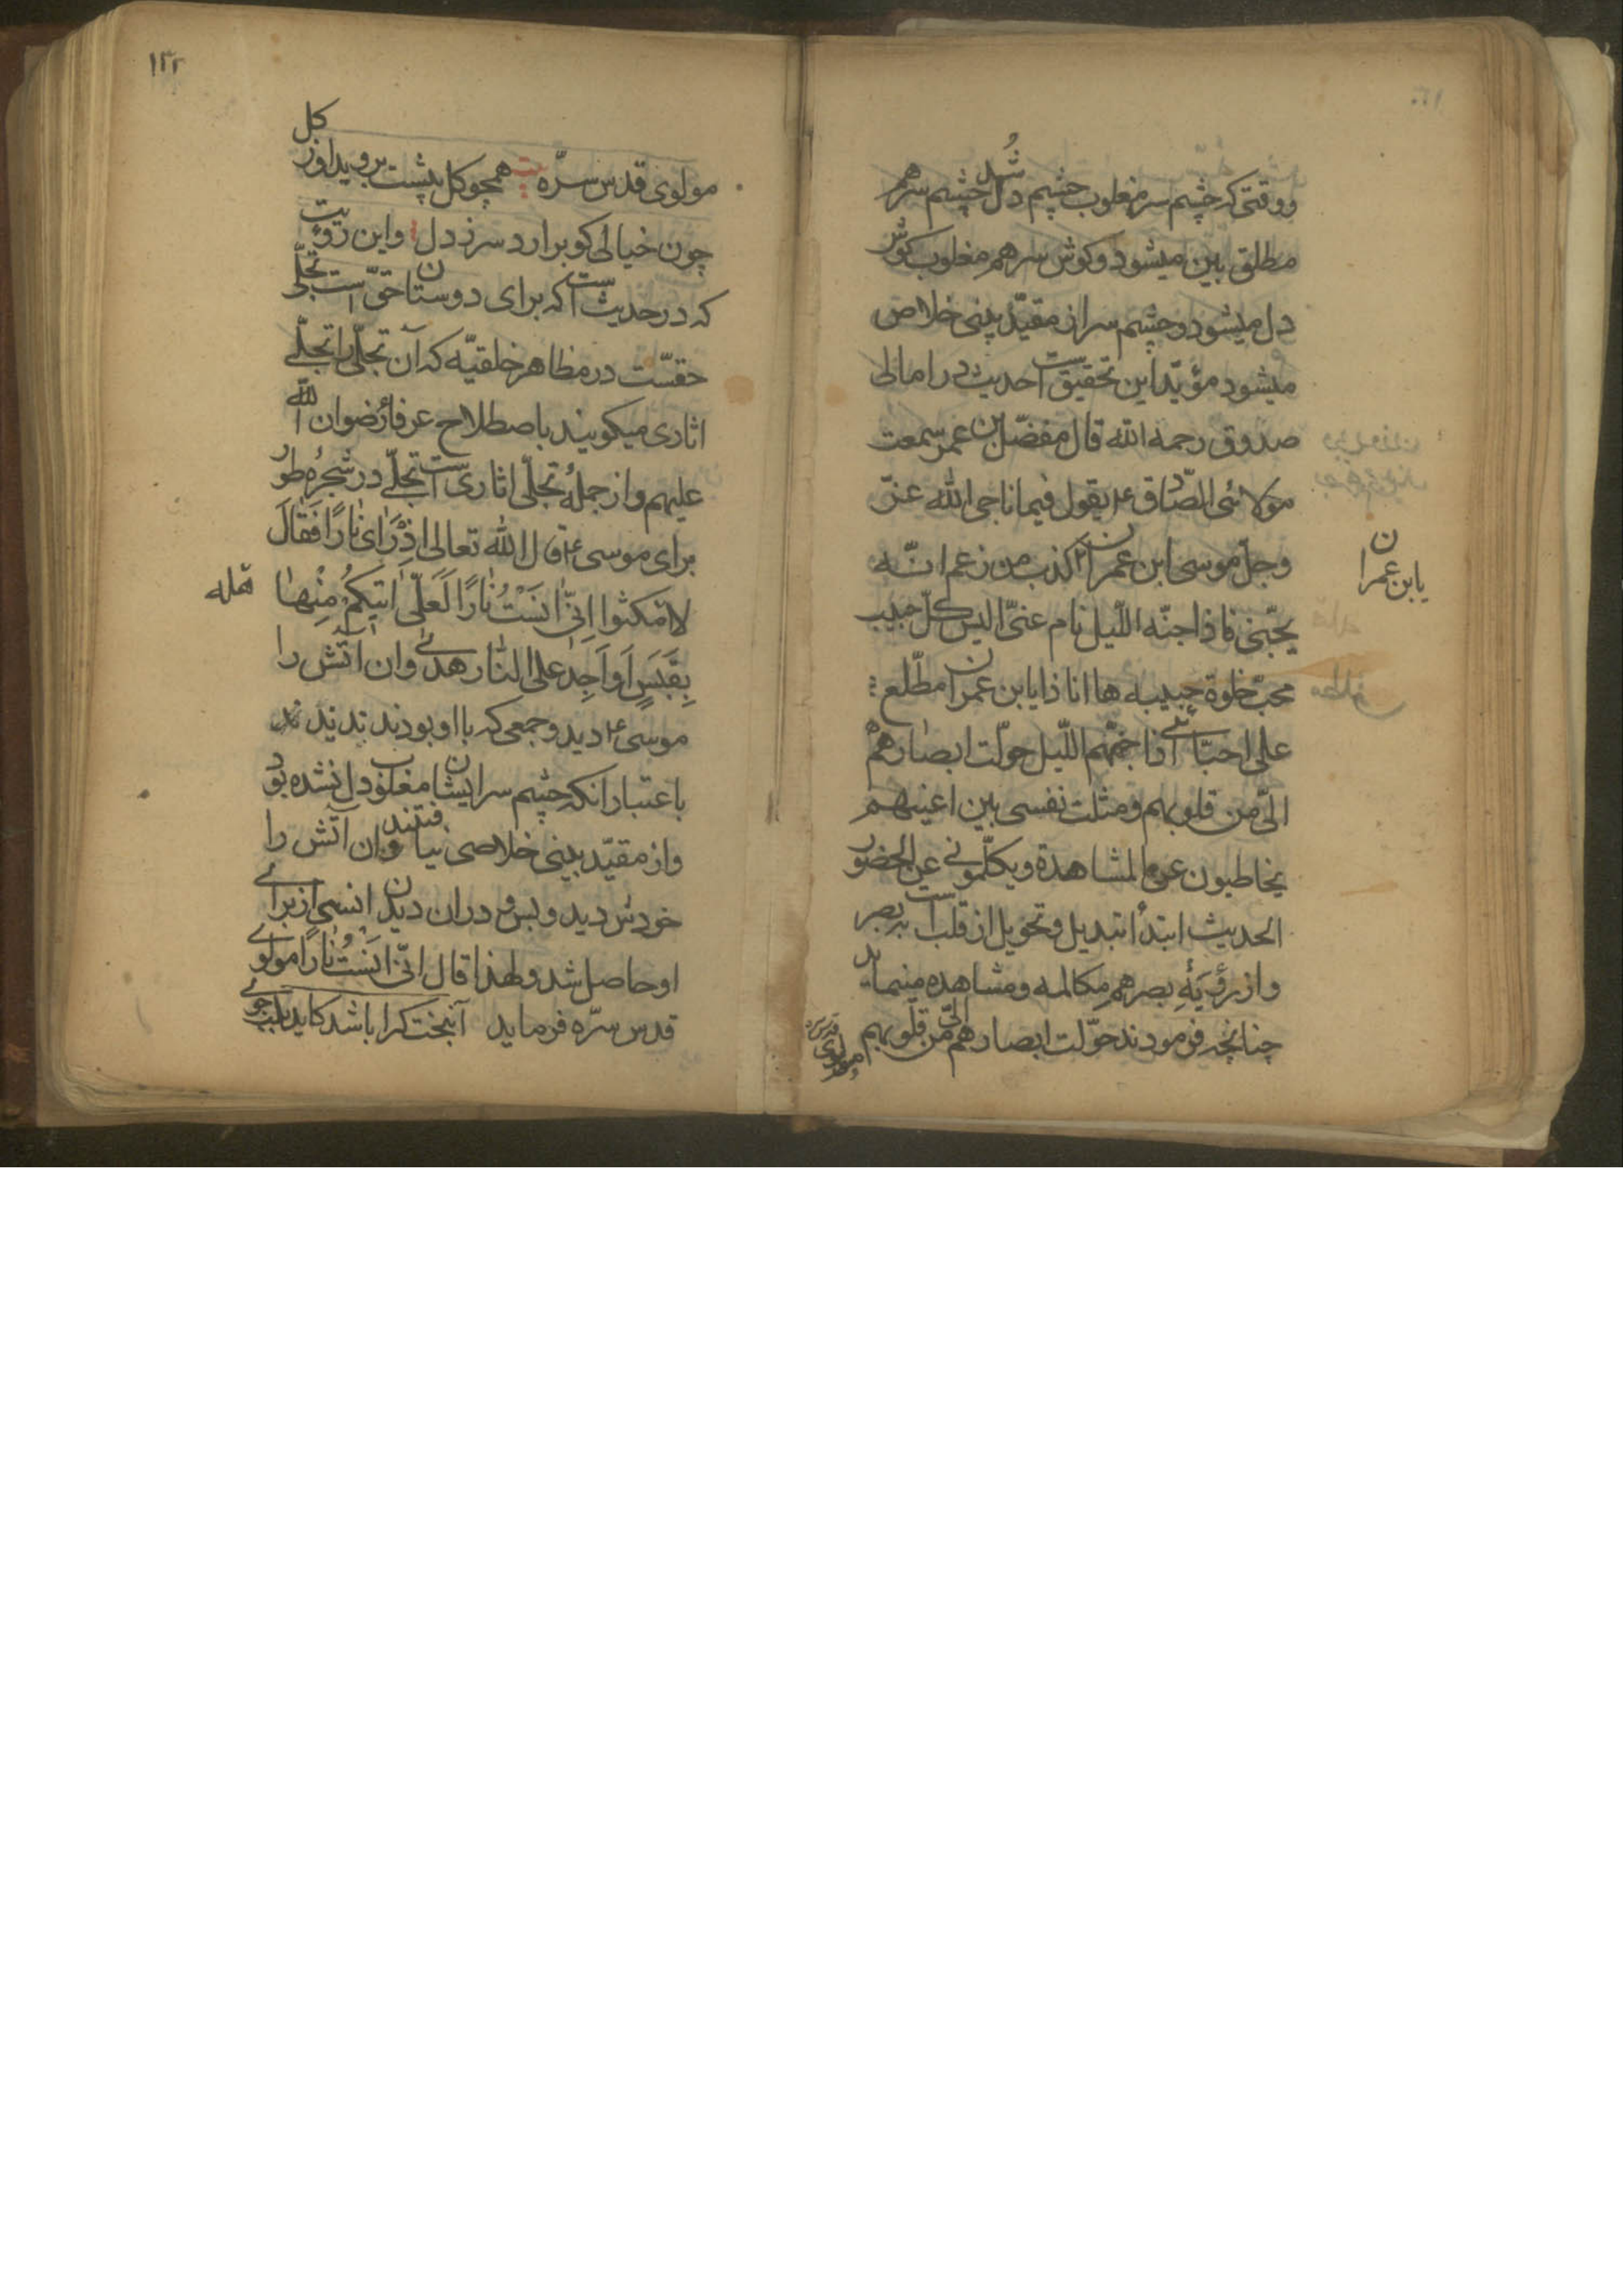 ووقتی که چشم سر مغلوب چشم دل شد چشم سر هم
مطلق بین میشود و کوش سر هم مغلوب کوش
دل میشود و چشم سر از مقیّد بینی خلاص
میشود مؤیّد این تحقیق است حدیث در امالی
صدوق رحمه الله قال مفضّل بن عمر سمعت
مولائی الصّادق ع یقول فیما ناجی الله عزّ
وجلّ موسی ابن عمران کذب من زعم انّه
یابن عمران
یحبّنی فاذا جنّه اللّیل نام عنّی الیس کلّ حبیب
محبّ خلوة حبیبه ها انا ذا یابن عمران مطّلع
علی احبّائی اذا جنّهم اللّیل حوّلت ابصارهم
الیّ من قلوبهم و مثلت نفسی بین اعینهم
یخاطبون عن المشاهدة ویکلّمونی عن الحضور
الحدیث ابتدأ تبدیل و تحویل از قلب است به بصر
و از رؤیَةِ بصر هم مکالمه و مشاهده مینماید
چنانچه فرمودند حوّلت ابصارهم الیّ من قلوبهم
مولوی قدس
۱۲۲
مولوی قدس سرّه همچو کل پشت بروید اوز کل
چون خیالی کو برارد سر ز دل واین رؤیت
که در حدیث است که برای دوستان حقّ است تجلّی
حقسّت در مظاهر خلقیّه که آن تجلّی را تجلّے
اثاری میکویند باصطلاح عرفا رضوان الله
علیهم و از جملهٔ تجلّی اثاری است تجلّے در شجرهٔ طور
برای موسی ع قال الله تعالی اذْ رَاٰی نٰارًا فَقٰالَ
لاهله امکثوا اِنّیٖ اٰنَسْتُ نٰارًا لَعَلّیٖ اٰتیٖکُمْ مِنْهٰا
بِقَبَسٍ اَو اَجِدُ علی النّار هدیً وان آتش را
موسی ع دید و جمعی که با او بودند ندیدند
باعتبار انکه چشم سر ایشان مغلوب دل نشده بود
واز مقیّد بینی خلاصی نیافتند وان آتش را
خودش دید و بس و دران دیدن انسی از برای
او حاصل شد و لهذا قال انّی اٰنَسْتُ نٰارًا مولوی
قدس سرّه فرماید آنبخت کرا باشد کاید بلب جوئے